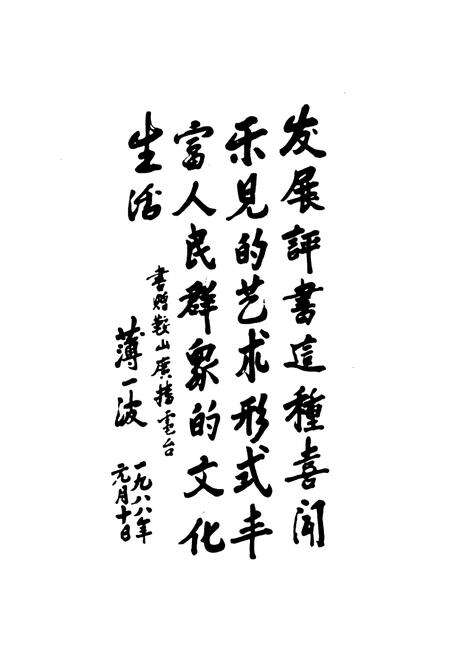 发展評書這種喜闻
乐見的艺术形式丰
富人民群众的文化
生活
書贈鞍山廣播電台
薄一波
一九八八年
元月十日